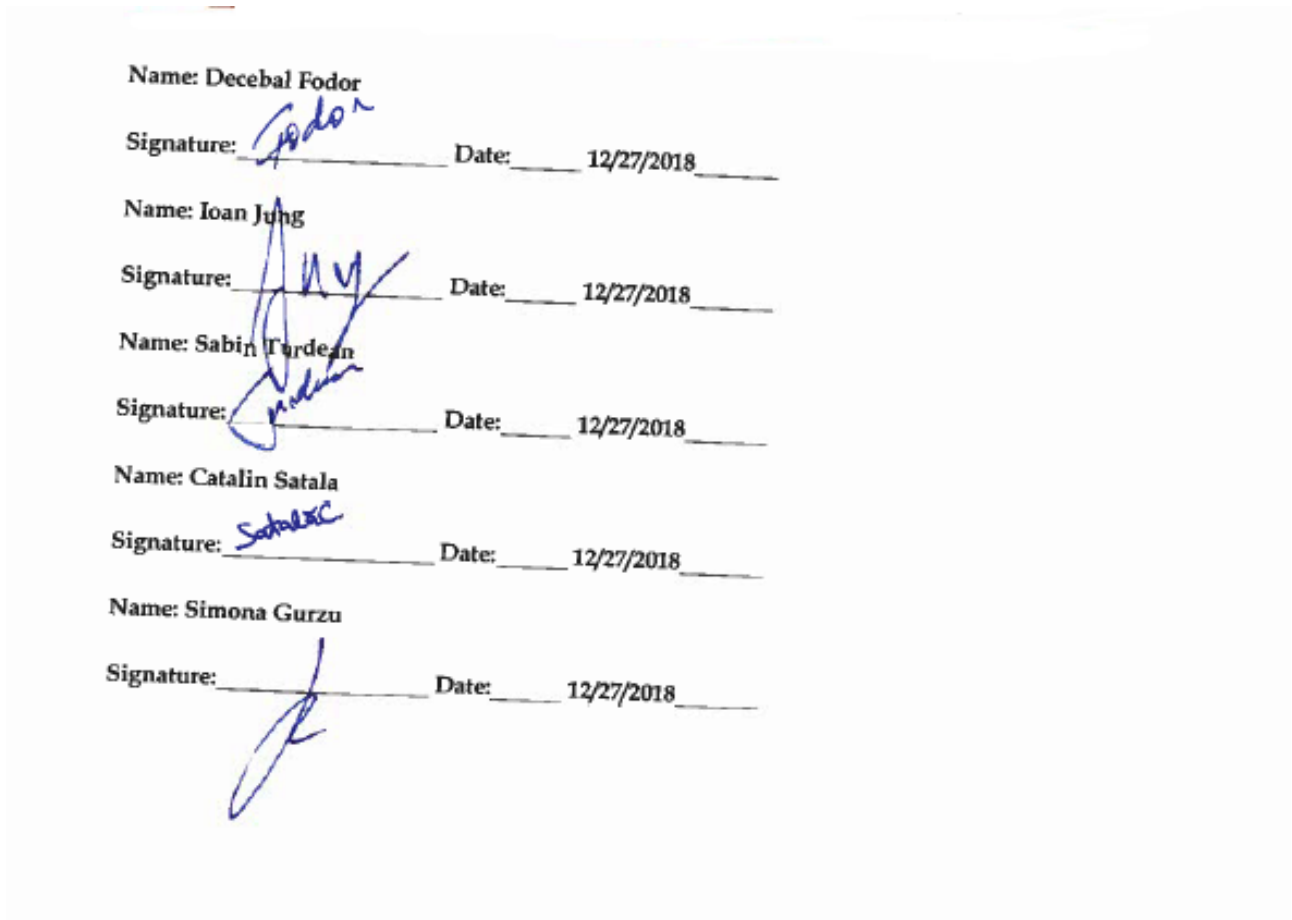 Name: Decebal Fodor
Signature: Fodor Date: 12/27/2018
Name: Ioan Jung
Signature: Date: 12/27/2018
Name: Sabin Turdean
Signature: Date: 12/27/2018
Name: Catalin Satala
Signature: Satala C Date: 12/27/2018
Name: Simona Gurzu
Signature: Date: 12/27/2018